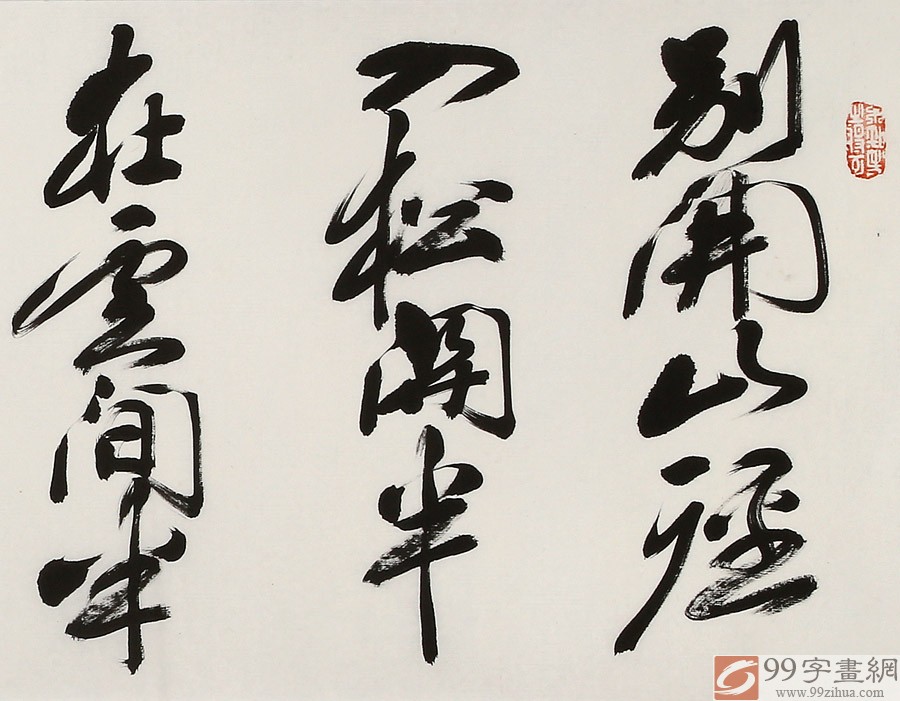 别開山徑
入松關半
在雲間半
99字畫網
www.99zihua.com